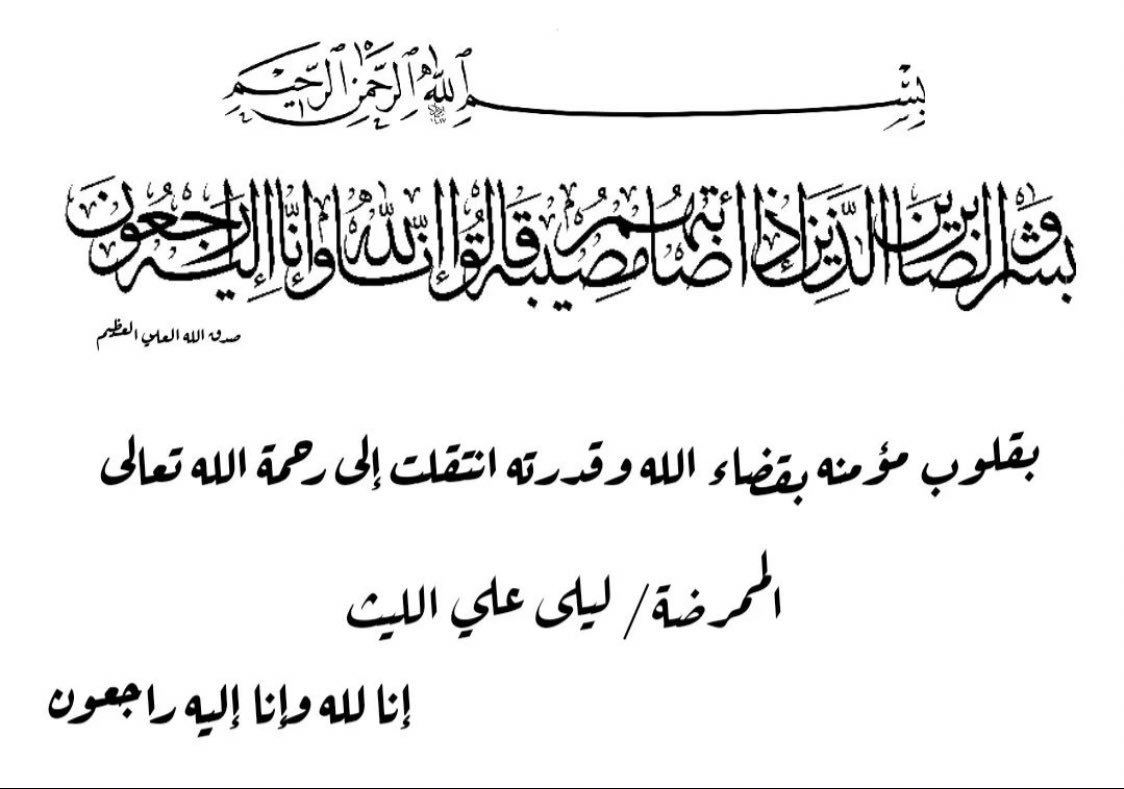 بِسْمِ ٱللَّهِ ٱلرَّحْمَٰنِ ٱلرَّحِيمِ
وبشر الصابرين الذين إذا أصابتهم مصيبة قالوا إنا لله وإنا إليه راجعون
صدق الله العلي العظيم
بقلوب مؤمنه بقضاء الله وقدرته انتقلت إلى رحمة الله تعالى
الممرضة/ ليلى علي الليث
إنا لله وإنا إليه راجعون